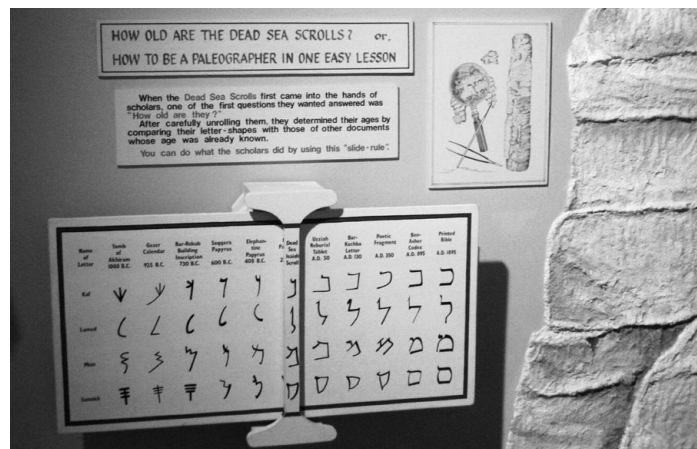 HOW OLD ARE THE DEAD SEA SCROLLS? or,
HOW TO BE A PALEOGRAPHER IN ONE EASY LESSON
When the Dead Sea Scrolls first came into the hands of
scholars, one of the first questions they wanted answered was
"How old are they?"
After carefully unrolling them, they determined their ages by
comparing their letter-shapes with those of other documents
whose age was already known.
You can do what the scholars did by using this "slide-rule".
Name
of
Letter
Tomb
of
Ahhiram
1000 B.C.
Gezer
Calendar
925 B.C.
Bar-Rekub
Building
Inscription
730 B.C.
Saqqara
Papyrus
600 B.C.
Elephan-
tine
Papyrus
408 B.C.
Dead
Sea
Isaiah
Scroll
Uzziah
Reburial
Tablet
A.D. 50
Bar-
Kochba
Letter
A.D. 130
Poetic
Fragment
A.D. 350
Ben-
Asher
Codex
A.D. 895
Printed
Bible
A.D. 1895
Kaf כ כ כ כ כ
Lamed ל ל ל ל ל
Mem מ מ מ מ מ
Samekh ס ס ס ס ס